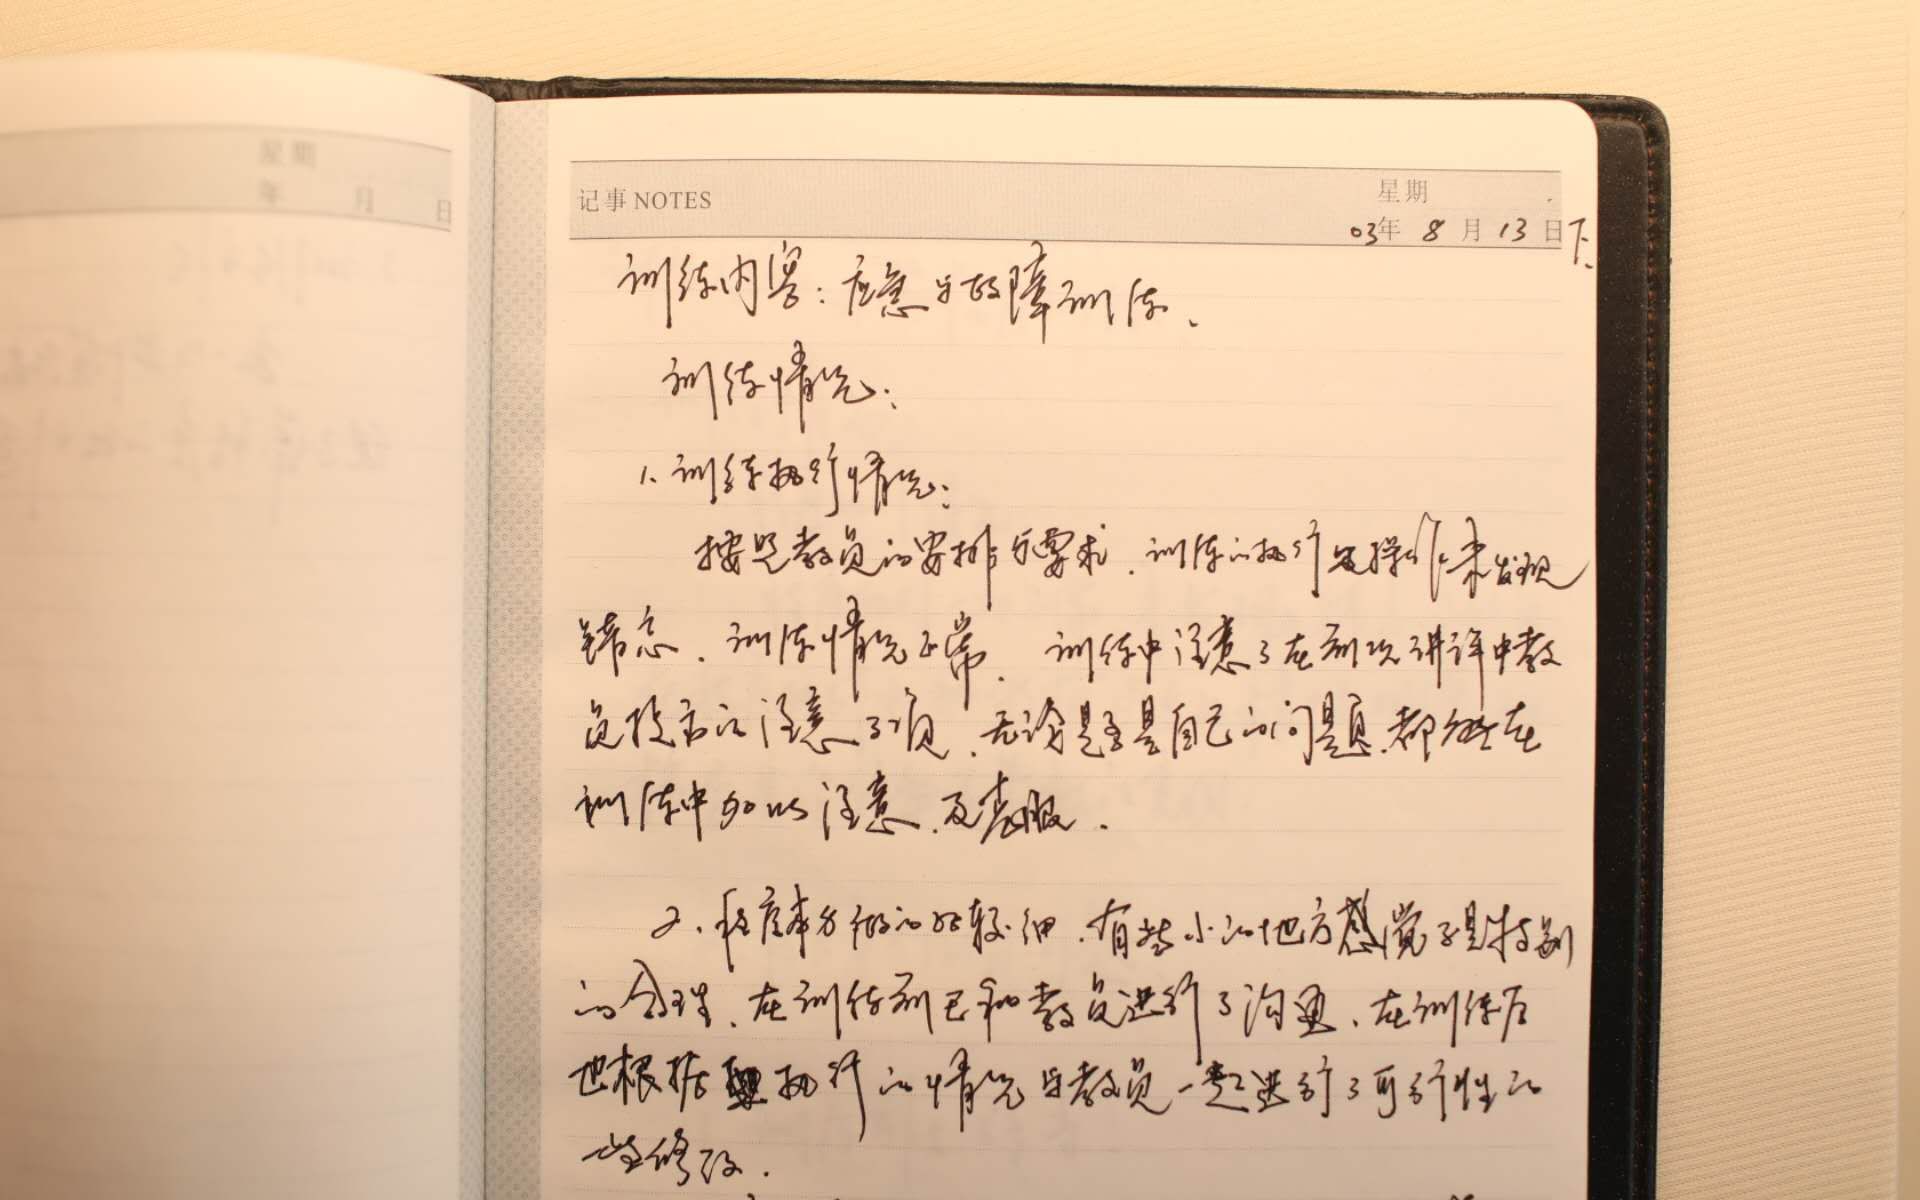 星期
年 月 日
记事 NOTES
星期
03年 8月 13日 下.
训练内容：应急与故障训练.
训练情况：
1. 训练执行情况：
按照教员的安排与要求，训练的执行及操作未发现
错忘，训练情况正常。训练中注意了在前次讲评中教
员提示的注意事项，无论是否是自己的问题，都能在
训练中加以注意及克服.
2. 程序本身做的比较细，有些小的地方感觉不是特别
的合理，在训练前已和教员进行了沟通，在训练后
也根据 执行的情况与教员一起进行了可行性的
一些修改.